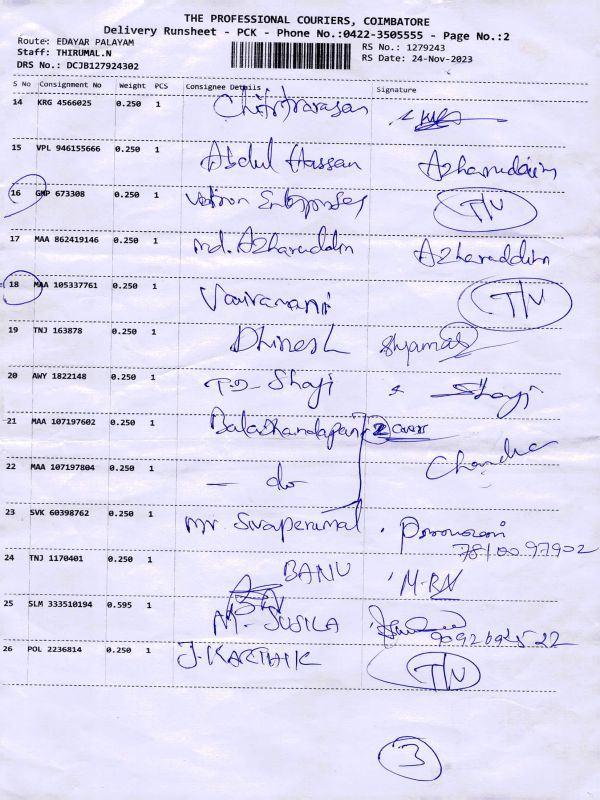 THE PROFESSIONAL COURIERS, COIMBATORE
Delivery Runsheet - PCK - Phone No.:0422-3505555 - Page No.:2
Route: EDAYAR PALAYAM
RS No.: 1279243
Staff: THIRUMAL.N
RS Date: 24-Nov-2023
DRS No.: DCJB127924302
S No Consignment No Weight PCS Consignee Details Signature
14 KRG 4566025 0.250 1
15 VPL 946155666 0.250 1 Abdul Hassan Azharuddin
16 GMP 673308 0.250 1 Enterprises T/V
17 MAA 862419146 0.250 1 Md. Azharuddin Azharuddin
18 MAA 105337761 0.250 1 Vairamani T/V
19 TNJ 163878 0.250 1 Dhinesh Shyamala
20 AWY 1822148 0.250 1 T.D. Shaji Shaji
21 MAA 107197602 0.250 1 2 Chandra
22 MAA 107197804 0.250 1 - do
23 SVK 60398762 0.250 1 Mr Sivaperumal
7810097902
24 TNJ 1170401 0.250 1 BANU
25 SLM 333510194 0.595 1 M. SUSILA
26 POL 2236814 0.250 1 J. KARTHIK T/V
3